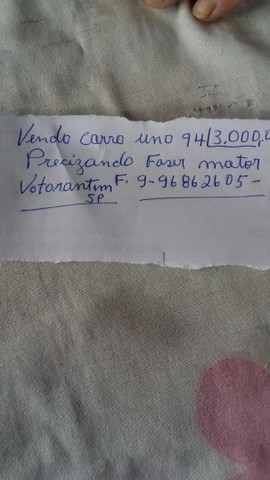 Vendo carro uno 94 3.000,0
Precizando Faser mator
Votorantim F. 9-96862605-
SP